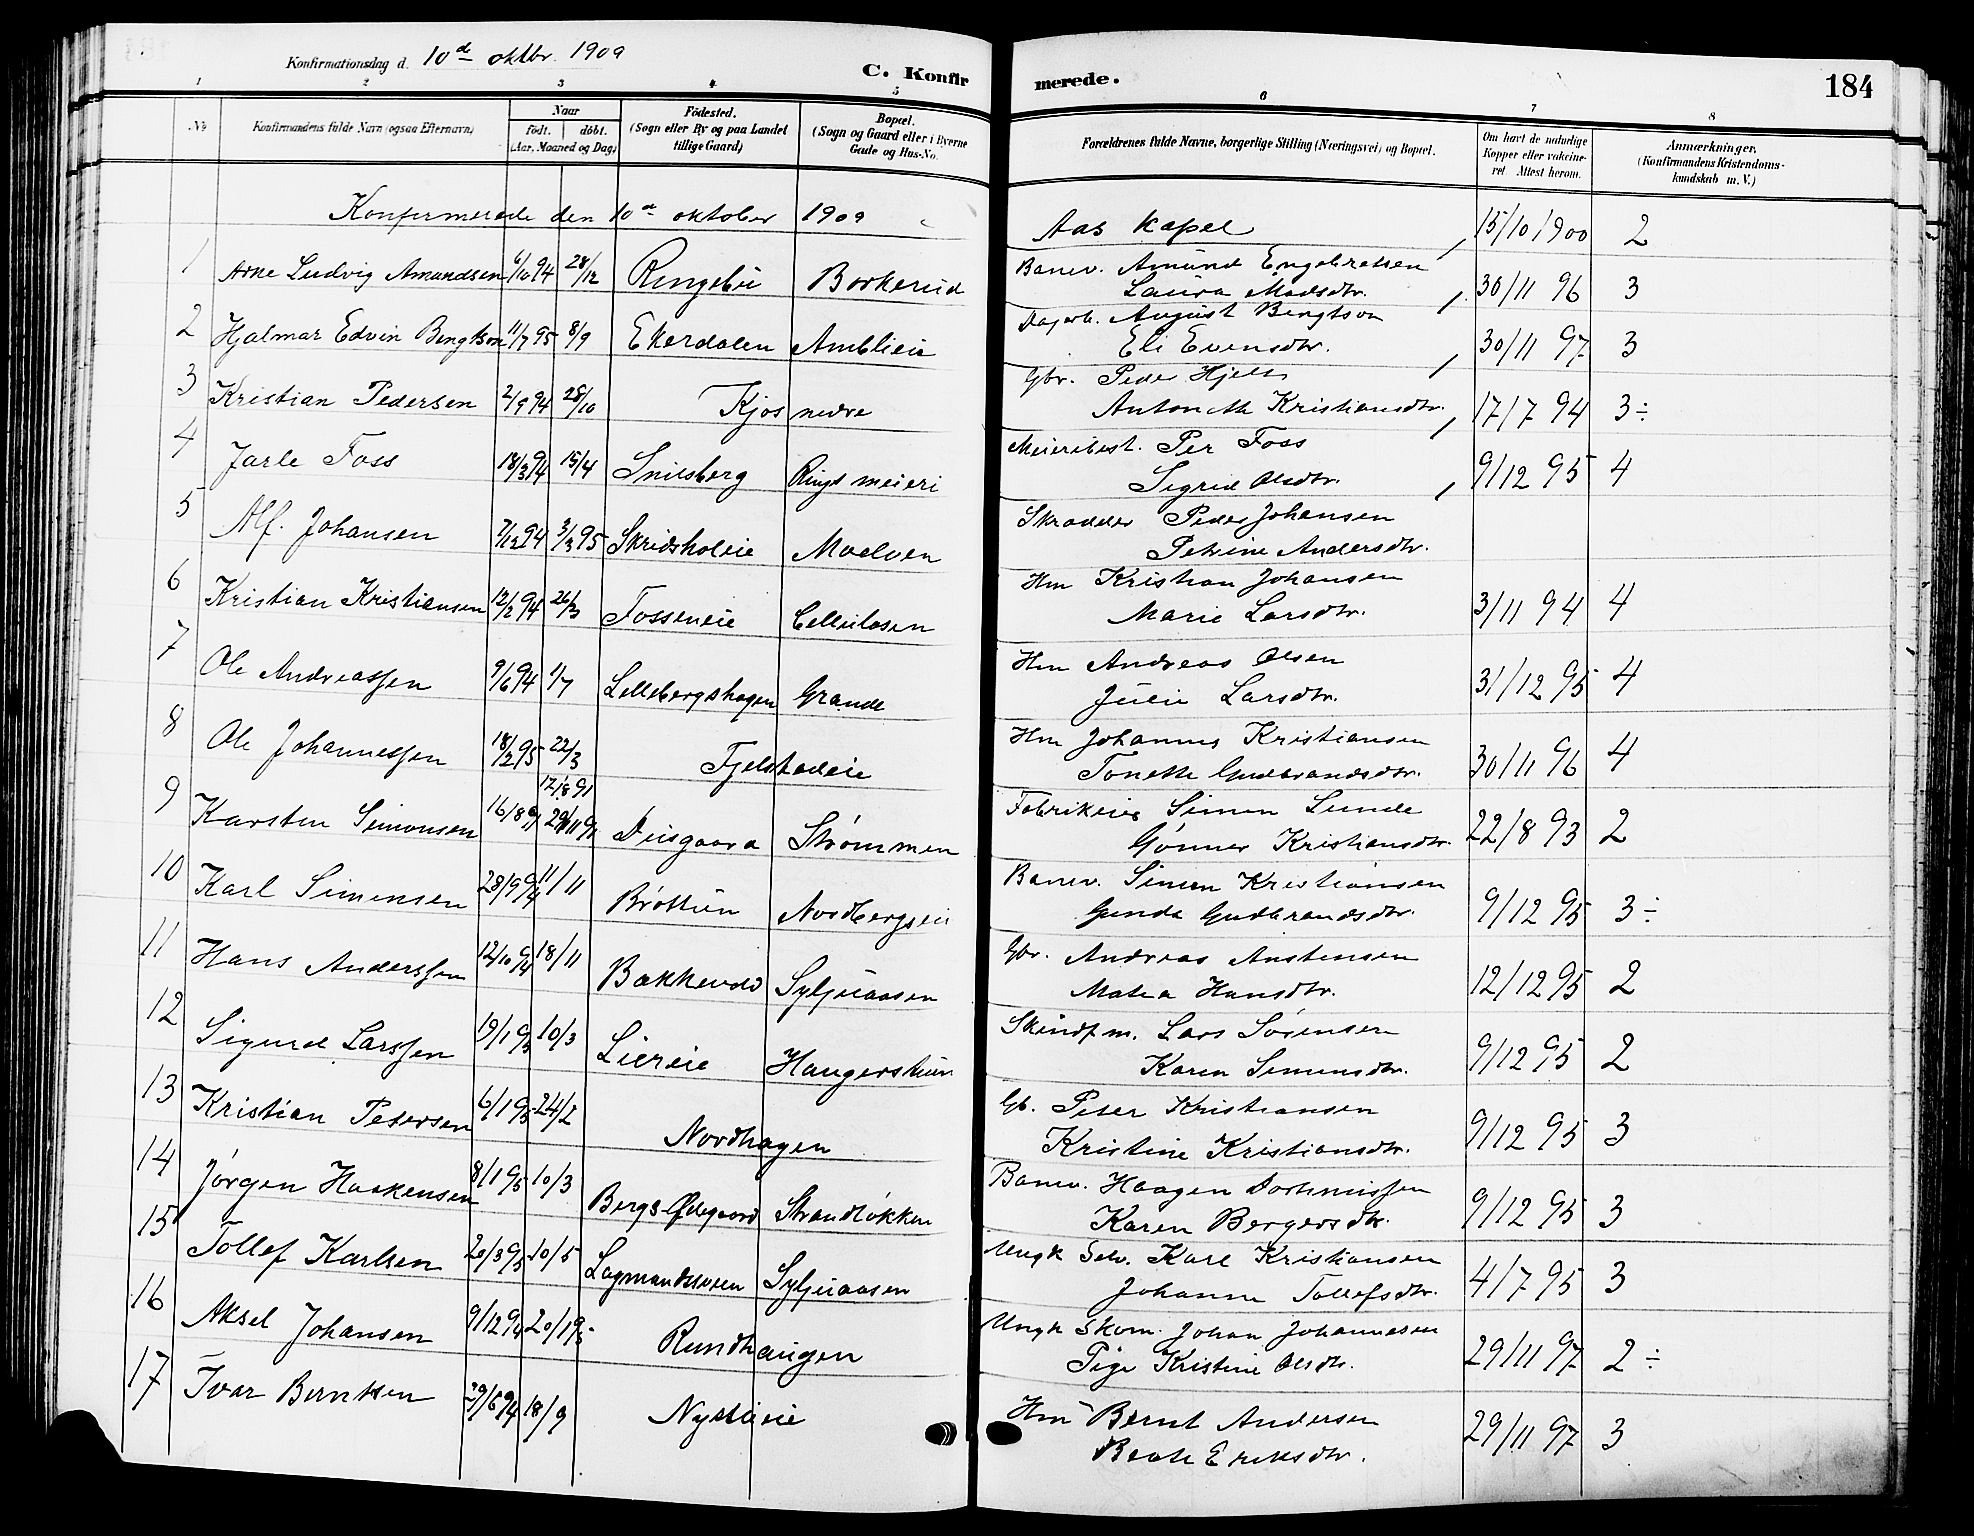 Konfirmationsdag d. 10de oktbr. 1909
C. Konfirmerede. 184
1 2 3 4 5 6 7 8
No Konfirmandens fulde Navn (ogsaa Efternavn) Naar født. døbt. (Aar, Maaned og Dag) Födested. (Sogn eller By og paa Landet tillige Gaard) Bopæl. (Sogn og Gaard eller i Byerne Gade og Hus-No. Forældrenes fulde Navne, borgerlige Stilling (Næringsvei) og Bopæl. Om havt de naturlige Kopper eller vakcineret Attest herom. Anmærkninger. (Konfirmandens Kristendomskundskab m. V.)
Konfirmerede den 10de oktober 1909 Aas kapel
1 Arne Ludvig Amundsen 6/10 94 28/12 Ringebu Borkerud Banev. Amund Engebretsen 15/10 1900 2
Laura Madsdtr.
2 Hjalmar Edvin Bengtson 11/7 95 8/9 Ekerdalen Amblieie Dagarb. August Bengtson 30/11 96 3
Eli Evensdtr.
3 Kristian Pedersen 2/9 94 28/10 Kjos nedre Gbr. Peder Hjels 30/11 97 3
Antonette Kristiansdtr.
4 Jarle Foss 18/3 94 15/4 Snilsberg Rings meieri Meieribest. Per Foss 17/7 94 3÷
Sigrid Olsdtr.
5 Alf. Johansen 7/12 94 3/3 95 Skridsholeie Moelven Skrædder Peder Johansen 9/12 95 4
Petrine Andersdtr.
6 Kristian Kristiansen 12/2 94 26/3 Fosseneie Cellulosen Hm Kristian Johansen 3/11 94 4
Marie Larsdtr.
7 Ole Andreassen 9/6 94 1/7 Lillebergshagen Grande Hm Andreas Olsen 31/12 95 4
Julie Larsdtr.
8 Ole Johannessen 18/2 95 22/3 Fjelstadeie Hm Johannes Kristiansen 30/11 96 4
Tonette Gudbrandsdtr.
9 Karsten Simonsen 16/8 91 29/11 91 Diisgaard Strømmen Fabrikeier Simen Lunde 22/8 93 2
Gunner Kristiansdtr.
10 Karl Simensen 28/9 94 11/11 Brøttun Nordbergseie Banev. Simen Kristiansen 9/12 95 3÷
Gunda Gudbrandsdtr.
11 Hans Anderssen 12/10 94 18/11 Bakkevold Syljuaasen Gbr. Andreas Anstensen 12/12 95 2
Matea Hansdtr.
12 Sigurd Larssen 19/1 95 10/3 Liereie Haugerstuen Skindf m. Lars Sørensen 9/12 95 2
Karen Simensdtr.
13 Kristian Petersen 6/1 95 24/2 Nordhagen Gb. Peter Kristiansen 9/12 95 3
Kristine Kristiansdtr.
14 Jørgen Haakensen 8/1 95 10/3 Bergs-Ødegaard Strandløkken Banev. Haagen Dorthniussen 9/12 95 3
Karen Bergersdtr.
15 Tollef Karlsen 20/3 95 10/5 Lagmandsveen Syljuaasen Ungk Selv. Karl Kristiansen 4/7 95 3
Johanne Tollefsdtr.
16 Aksel Johansen 9/12 94 20/1 95 Rundhaugen Ungk Skom. Johan Johannesen 29/11 97 2÷
Pige Kristine Olsdtr.
17 Ivar Berntsen 29/6 94 18/9 Nystueie Hm Bernt Andersen 29/11 97 3
Beate Eriksdtr.